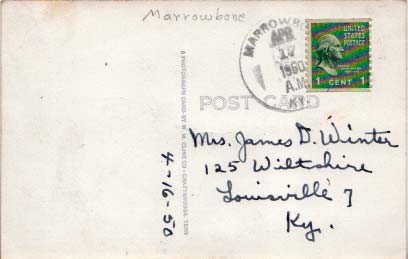 Marrowbone
MARROWB
APR
17
1950
A.M.
KY.
UNITED
STATES
POSTAGE
1 CENT 1
POST CARD
A PHOTOGRAPH CARD BY W. M. CLINE CO - CHATTANOOGA, TENN
4-16-50
Mrs. James D. Winter
125 Wiltshire
Louisville 7
Ky.